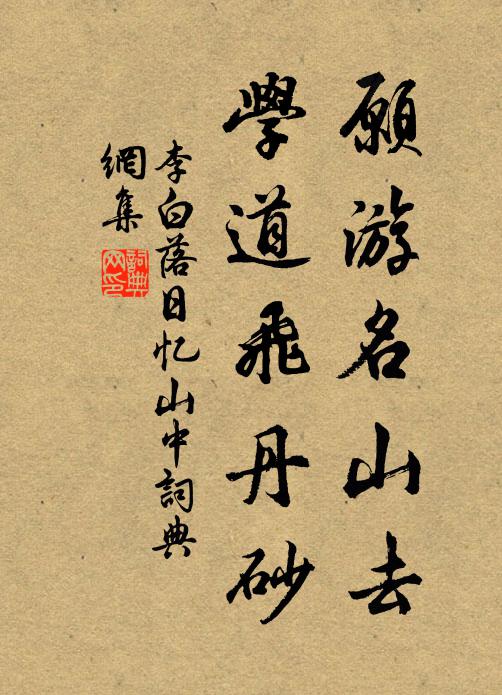 願游名山去
學道飛丹砂
李白落日忆山中詞典
網集
詞典
网印